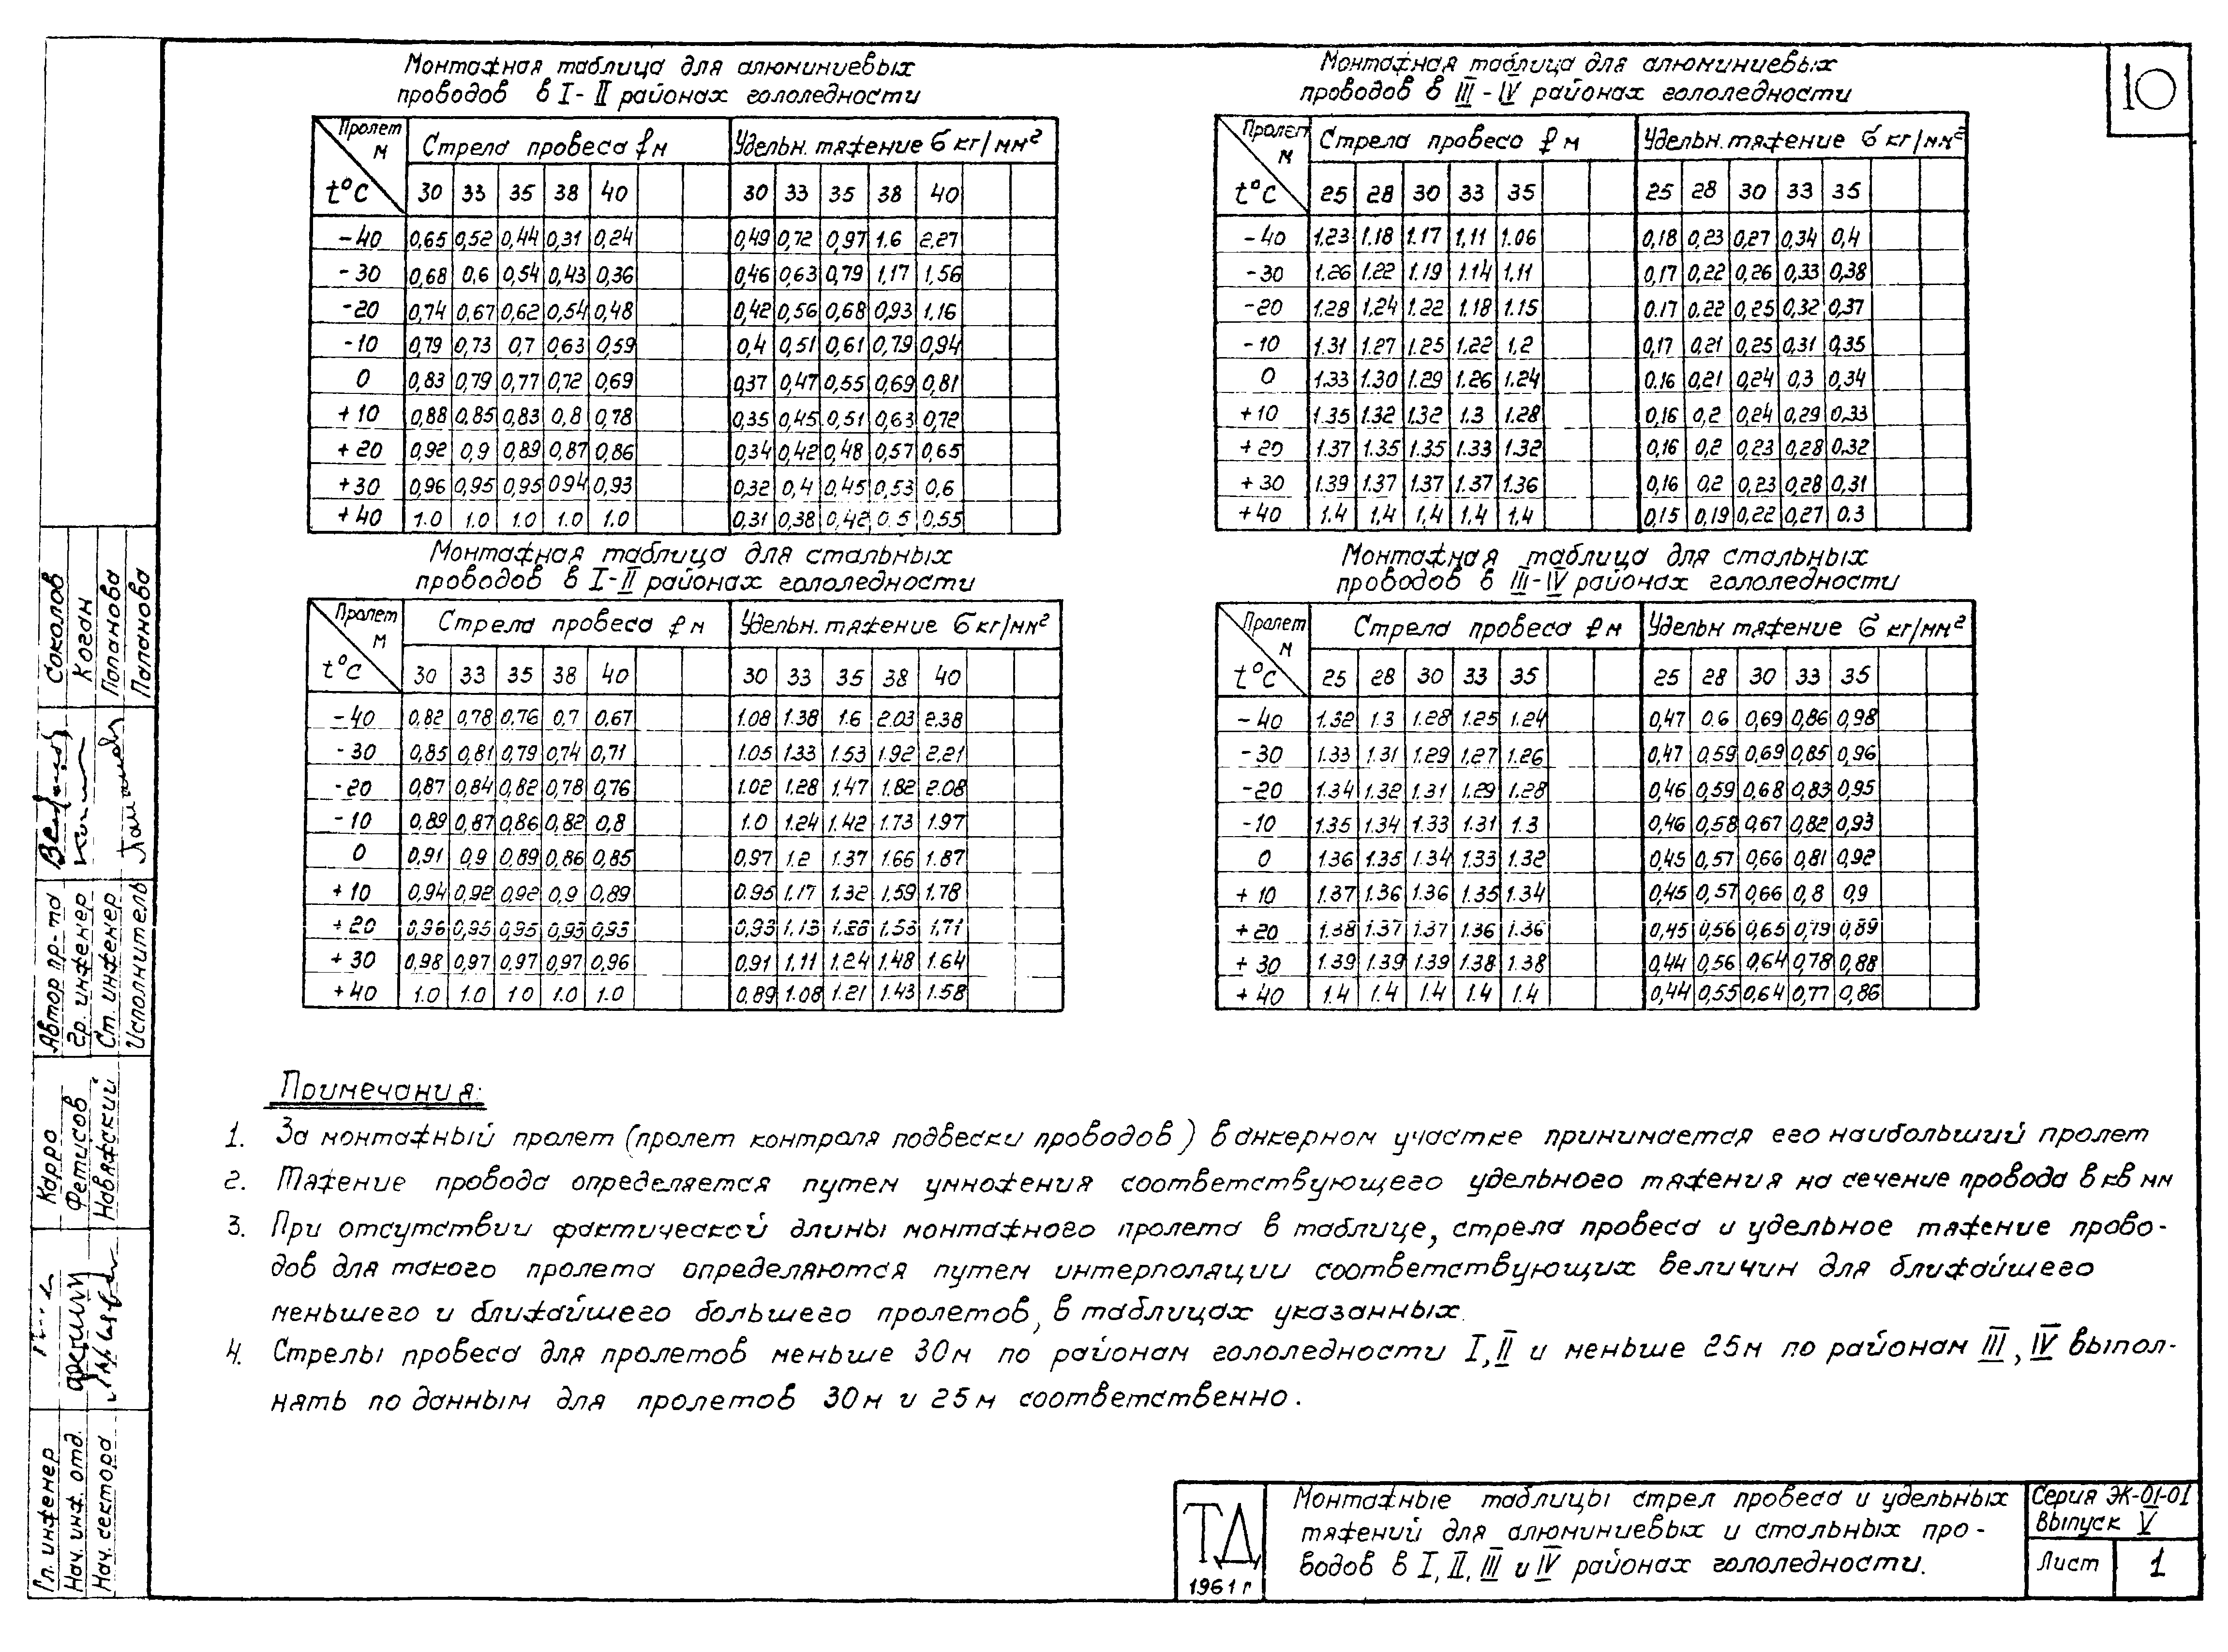 10
Монтажная таблица для алюминиевых
проводов в I-II районах гололедности
Пролет м t°C Стрела провеса f м Удельн. тяжение б кг/мм²
30 33 35 38 40 30 33 35 38 40
-40 0,65 0,52 0,44 0,31 0,24 0,49 0,72 0,97 1.6 2.27
-30 0,68 0,6 0,54 0,43 0,36 0,46 0,63 0,79 1,17 1,56
-20 0,74 0,67 0,62 0,54 0,48 0,42 0,56 0,68 0,93 1.16
-10 0,79 0,73 0,7 0,63 0,59 0,4 0,51 0,61 0,79 0,94
0 0,83 0,79 0,77 0,72 0,69 0,37 0,47 0,55 0,69 0,81
+10 0,88 0,85 0,83 0,8 0,78 0,35 0,45 0,51 0,63 0,72
+20 0,92 0,9 0,89 0,87 0,86 0,34 0,42 0,48 0,57 0,65
+30 0,96 0,95 0,95 094 0,93 0,32 0,4 0,45 0,53 0,6
+40 1.0 1.0 1.0 1.0 1.0 0,31 0,38 0,42 0.5 0,55
Монтажная таблица для алюминиевых
проводов в III-IV районах гололедности
Пролет м t°C Стрела провеса f м Удельн. тяжение б кг/мм²
25 28 30 33 35 25 28 30 33 35
-40 1.23 1.18 1.17 1,11 1.06 0,18 0,23 0,27 0,34 0,4
-30 1.26 1.22 1.19 1.14 1.11 0,17 0,22 0,26 0,33 0,38
-20 1.28 1.24 1.22 1.18 1.15 0.17 0.22 0,25 0,32 0,37
-10 1.31 1.27 1.25 1.22 1,2 0,17 0,21 0,25 0,31 0,35
0 1.33 1.30 1.29 1.26 1.24 0.16 0,21 0,24 0,3 0,34
+10 1.35 1.32 1.32 1.3 1.28 0,16 0,2 0,24 0,29 0,33
+20 1.37 1.35 1.35 1.33 1.32 0,16 0,2 0,23 0,28 0,32
+30 1.39 1.37 1.37 1.37 1.36 0,16 0,2 0,23 0,28 0,31
+40 1.4 1,4 1,4 1,4 1,4 0,15 0,19 0,22 0,27 0.3
Монтажная таблица для стальных
проводов в I-II районах гололедности
Пролет м t°C Стрела провеса f м Удельн. тяжение б кг/мм²
30 33 35 38 40 30 33 35 38 40
-40 0,82 0,78 0,76 0,7 0,67 1.08 1.38 1.6 2.03 2.38
-30 0,85 0,81 0,79 0,74 0,71 1.05 1.33 1.53 1.92 2.21
-20 0,87 0,84 0,82 0,78 0,76 1.02 1.28 1.47 1.82 2.08
-10 0,89 0,87 0,86 0,82 0,8 1.0 1.24 1.42 1.73 1.97
0 0,91 0,9 0,89 0,86 0,85 0,97 1.2 1.37 1.66 1.87
+10 0,94 0,92 0,92 0,9 0,89 0.95 1.17 1.32 1.59 1.78
+20 0,96 0,95 0,95 0,93 0,93 0,93 1.13 1.28 1.53 1.71
+30 0,98 0,97 0,97 0,97 0,96 0,91 1.11 1.24 1.48 1.64
+40 1.0 1.0 1 0 1.0 1.0 0,89 1.08 1.21 1.43 1.58
Монтажная таблица для стальных
проводов в III-IV районах гололедности
Пролет м t°C Стрела провеса f м Удельн тяжение б кг/мм²
25 28 30 33 35 25 28 30 33 35
-40 1.32 1.3 1.28 1.25 1.24 0,47 0.6 0,69 0,86 0,98
-30 1.33 1.31 1.29 1,27 1.26 0,47 0,59 0,69 0,85 0,96
-20 1.34 1.32 1.31 1.29 1.28 0,46 0,59 0,68 0,83 0,95
-10 1.35 1.34 1.33 1.31 1.3 0,46 0,58 0,67 0,82 0,93
0 1.36 1.35 1.34 1.33 1.32 0,45 0,57 0,66 0,81 0,92
+10 1.37 1.36 1.36 1.35 1.34 0,45 0,57 0,66 0,8 0,9
+20 1.38 1.37 1.37 1.36 1.36 0,45 0,56 0,65 0,79 0,89
+30 1.39 1.39 1.39 1.38 1.38 0,44 0,56 0,64 0,78 0,88
+40 1.4 1.4 1.4 1.4 1.4 0,44 0,55 0,64 0,77 0,86
Примечания:
1. За монтажный пролет (пролет контроля подвески проводов) в анкерном участке принимается его наибольший пролет
2. Тяжение провода определяется путем умножения соответствующего удельного тяжения на сечение провода в кв мм
3. При отсутствии фактической длины монтажного пролета в таблице, стрела провеса и удельное тяжение прово-
дов для такого пролета определяются путем интерполяции соответствующих величин для ближайшего
меньшего и ближайшего большего пролетов, в таблицах указанных.
4. Стрелы провеса для пролетов меньше 30м по районам гололедности I, II и меньше 25м по районам III, IV выпол-
нять по данным для пролетов 30м и 25м соответственно.
ТД
1961 г
Монтажные таблицы стрел провеса и удельных
тяжений для алюминиевых и стальных про-
водов в I, II, III и IV районах гололедности.
Серия ЭК-01-01
Выпуск V
Лист 1
Гл. инженер Карро
Нач. инж. отд. Фетисов
Нач. сектора Навяжский
Автор пр-та Соколов
Гр. инженер Коган
Ст. инженер Папанова
Исполнитель Папанова